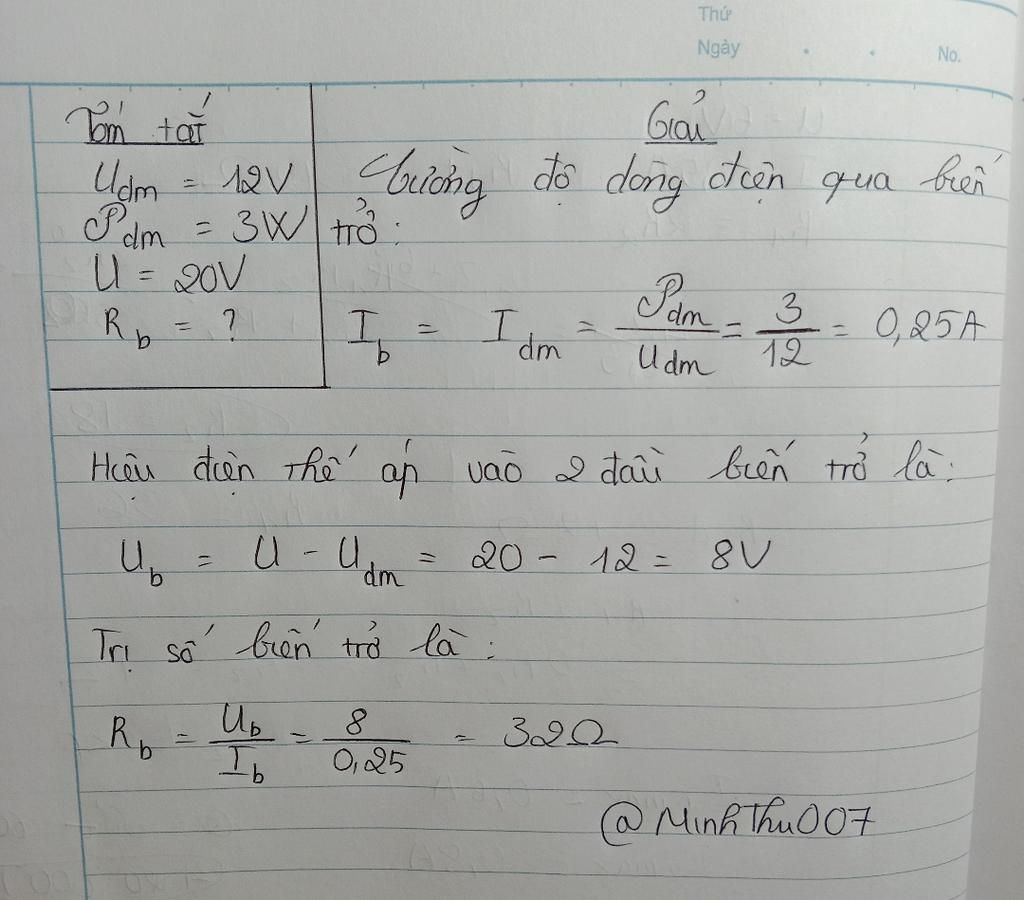 Thứ
Ngày . . No.
Tóm tắt
Uđm = 12V
Pđm = 3W
U = 20V
Rb = ?
Giải
Cường độ dòng điện qua biến
trở:
Ib = Iđm = Pđm/Uđm = 3/12 = 0,25A
Hiệu điện thế áp vào 2 đầu biến trở là:
Ub = U - Uđm = 20 - 12 = 8V
Trị số biến trở là:
Rb = Ub/Ib = 8/0,25 = 32Ω
@MinhThu007